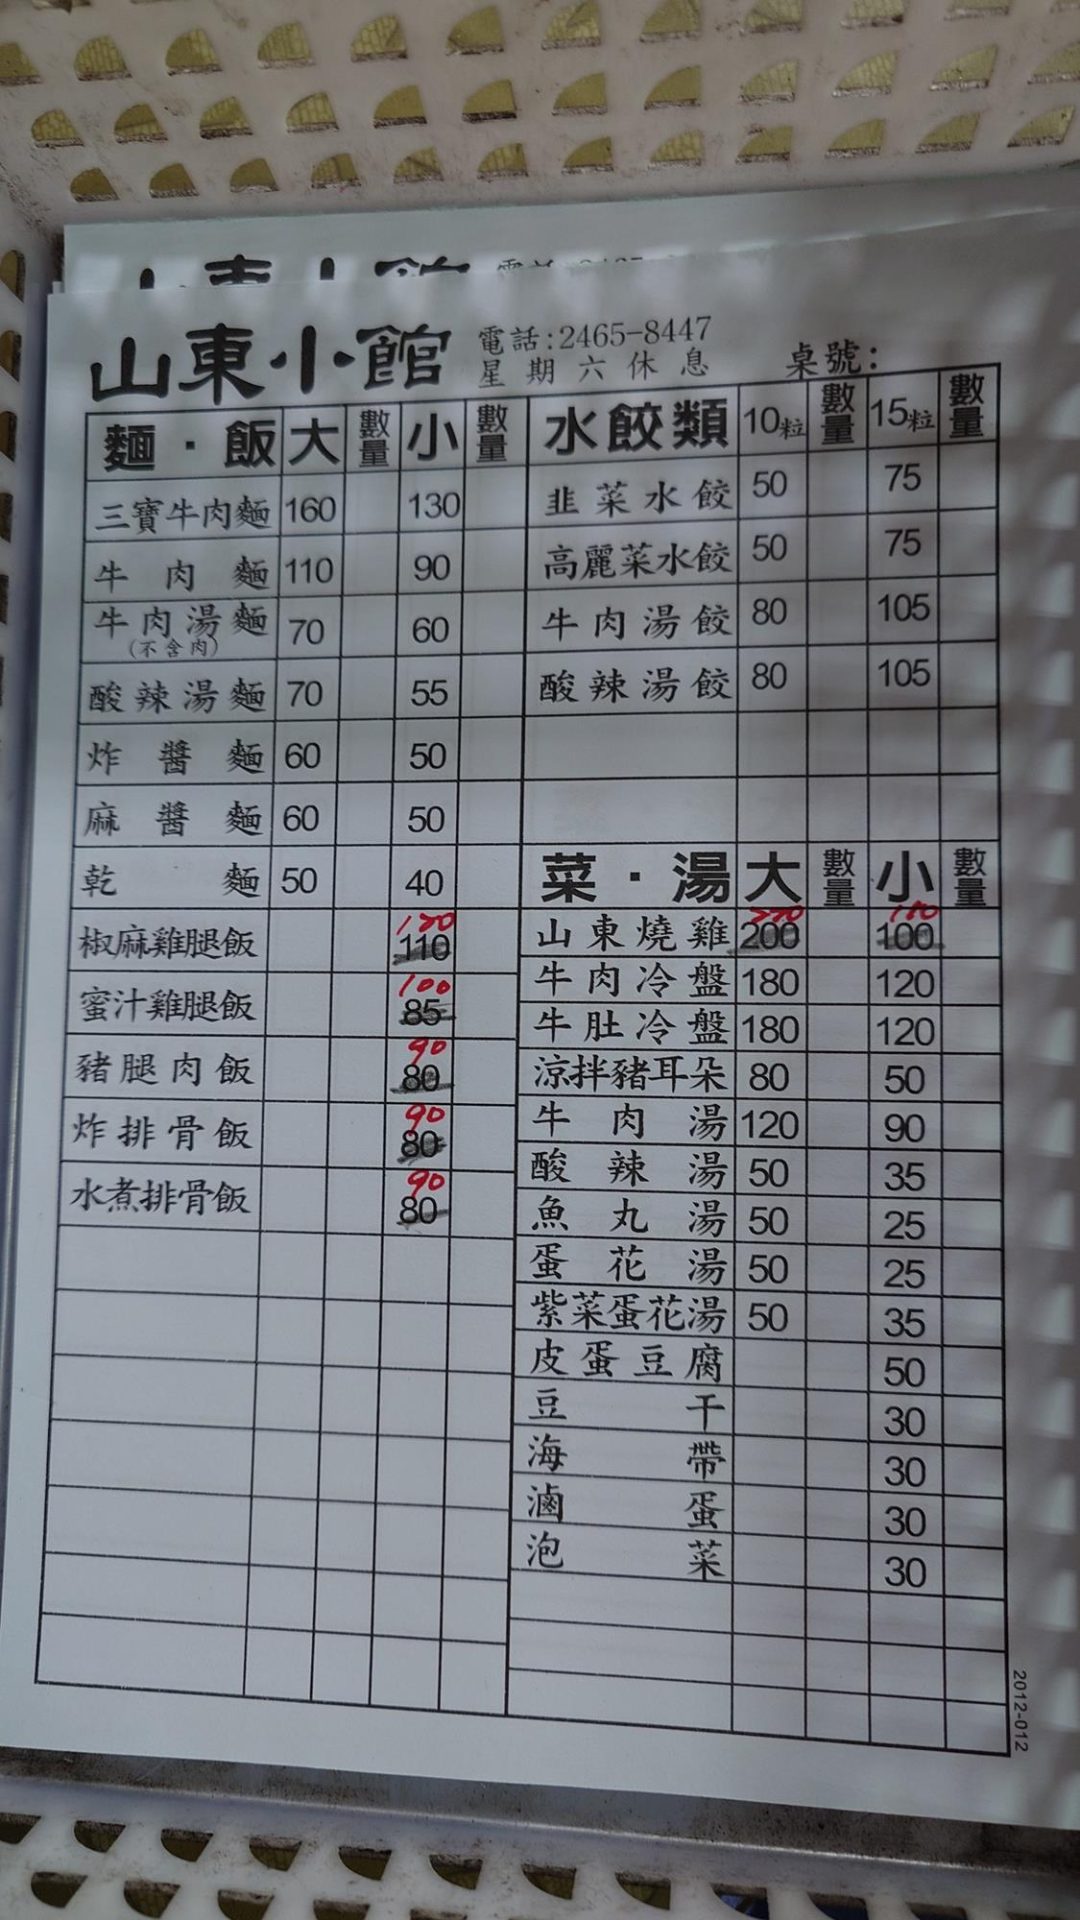 山東小館
電話:2465-8447
星期六休息
桌號:
麵·飯 大 數量 小 數量
三寶牛肉麵 160 130
牛肉麵 110 90
牛肉湯麵 70 60
(不含肉)
酸辣湯麵 70 55
炸醬麵 60 50
麻醬麵 60 50
乾麵 50 40
椒麻雞腿飯 110 120
蜜汁雞腿飯 85 100
豬腿肉飯 80 90
炸排骨飯 80 90
水煮排骨飯 80 90
水餃類 10粒 數量 15粒 數量
韭菜水餃 50 75
高麗菜水餃 50 75
牛肉湯餃 80 105
酸辣湯餃 80 105
菜·湯 大 數量 小 數量
山東燒雞 200 100
牛肉冷盤 180 120
牛肚冷盤 180 120
涼拌豬耳朵 80 50
牛肉湯 120 90
酸辣湯 50 35
魚丸湯 50 25
蛋花湯 50 25
紫菜蛋花湯 50 35
皮蛋豆腐 50
豆干 30
海帶 30
滷蛋 30
泡菜 30
2012-012